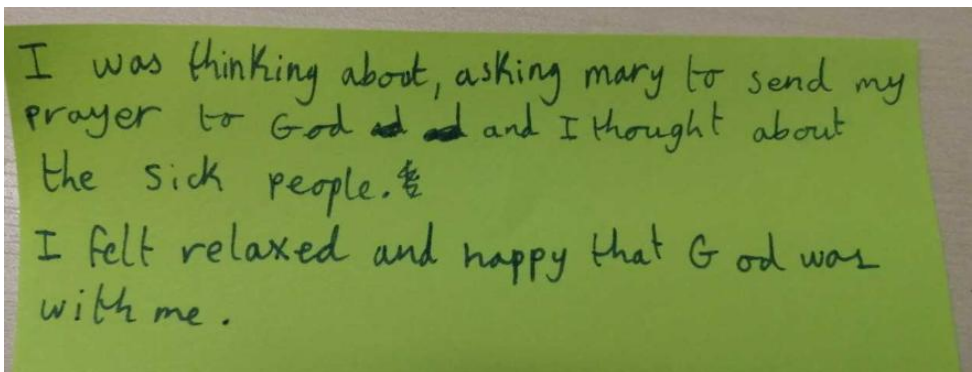 I was thinking about, asking mary to send my
prayer to God and I thought about
the sick people.
I felt relaxed and happy that God was
with me.